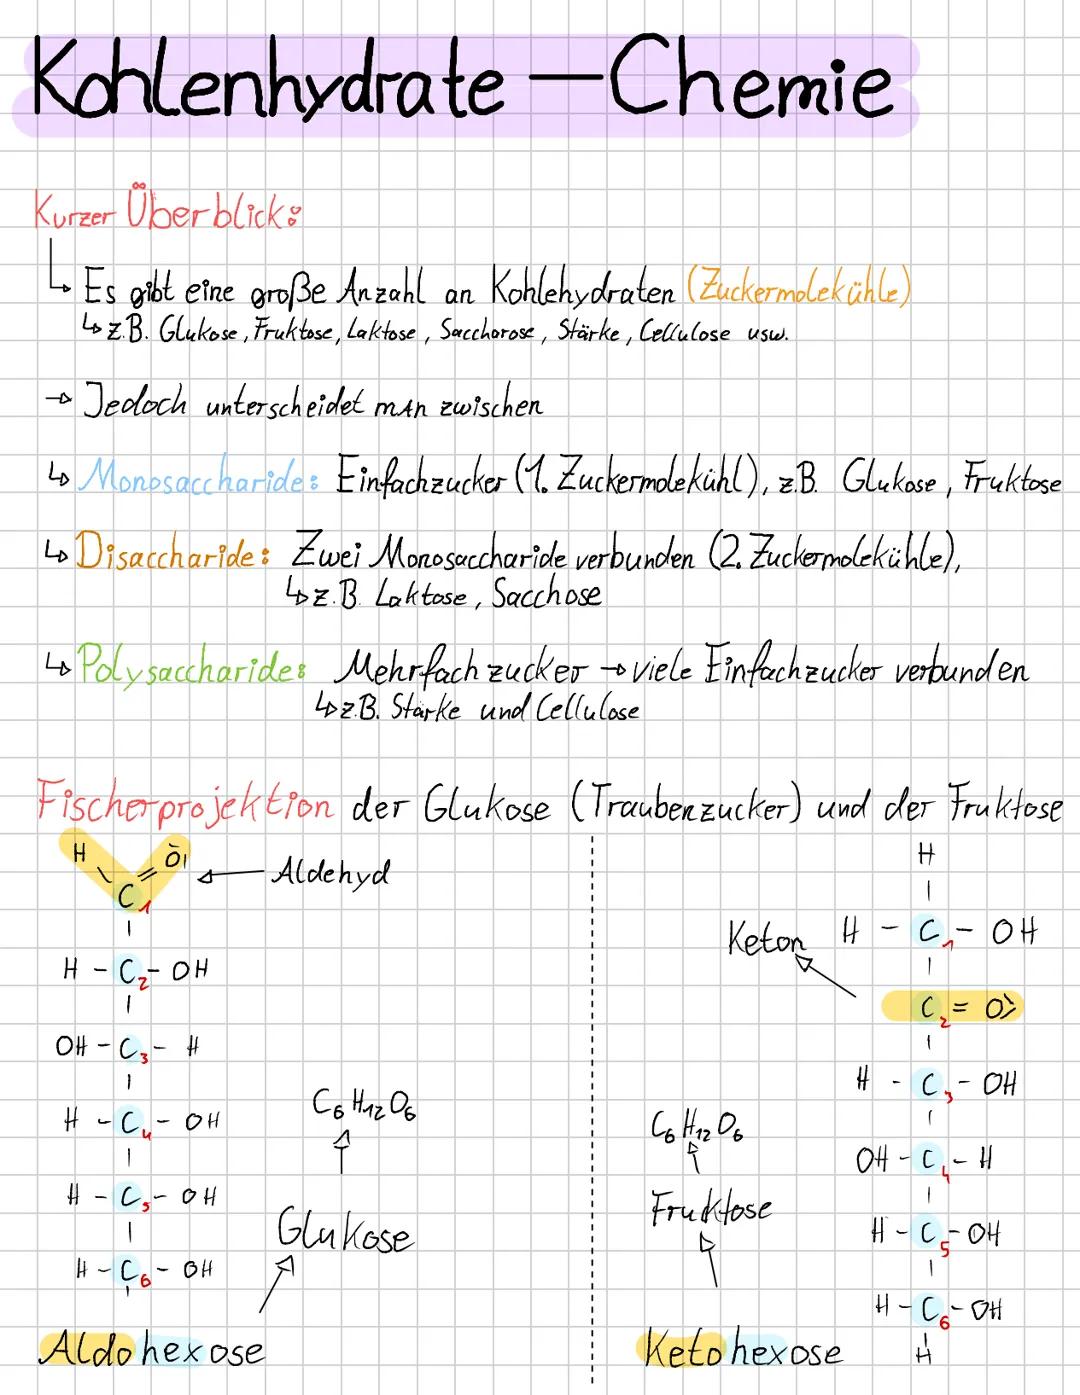 Kohlenhydrate – Chemie
Kurzer Überblick:
↳ Es gibt eine große Anzahl an Kohlehydraten (Zuckermolekühle)
↳ z.B. Glukose, Fruktose, Laktose, Saccharose, Stärke, Cellulose usw.
→ Jedoch unterscheidet man zwischen
↳ Monosaccharide: Einfachzucker (1. Zuckermolekühl), z.B. Glukose, Fruktose
↳ Disaccharide: Zwei Monosaccharide verbunden (2. Zuckermolekühle),
↳ z.B. Laktose, Sacchose
↳ Polysaccharide: Mehrfachzucker → viele Einfachzucker verbunden
↳ z.B. Stärke und Cellulose
Fischerprojektion der Glukose (Traubenzucker) und der Fruktose
H O
C1
← Aldehyd
H - C2 - OH
OH - C3 - H
H - C4 - OH
H - C5 - OH
H - C6 - OH
C6H12O6
Glukose
Aldohexose
H
H - C1 - OH
Keton
C2 = O
H - C3 - OH
OH - C4 - H
H - C5 - OH
H - C6 - OH
H
C6H12O6
Fruktose
Ketohexose